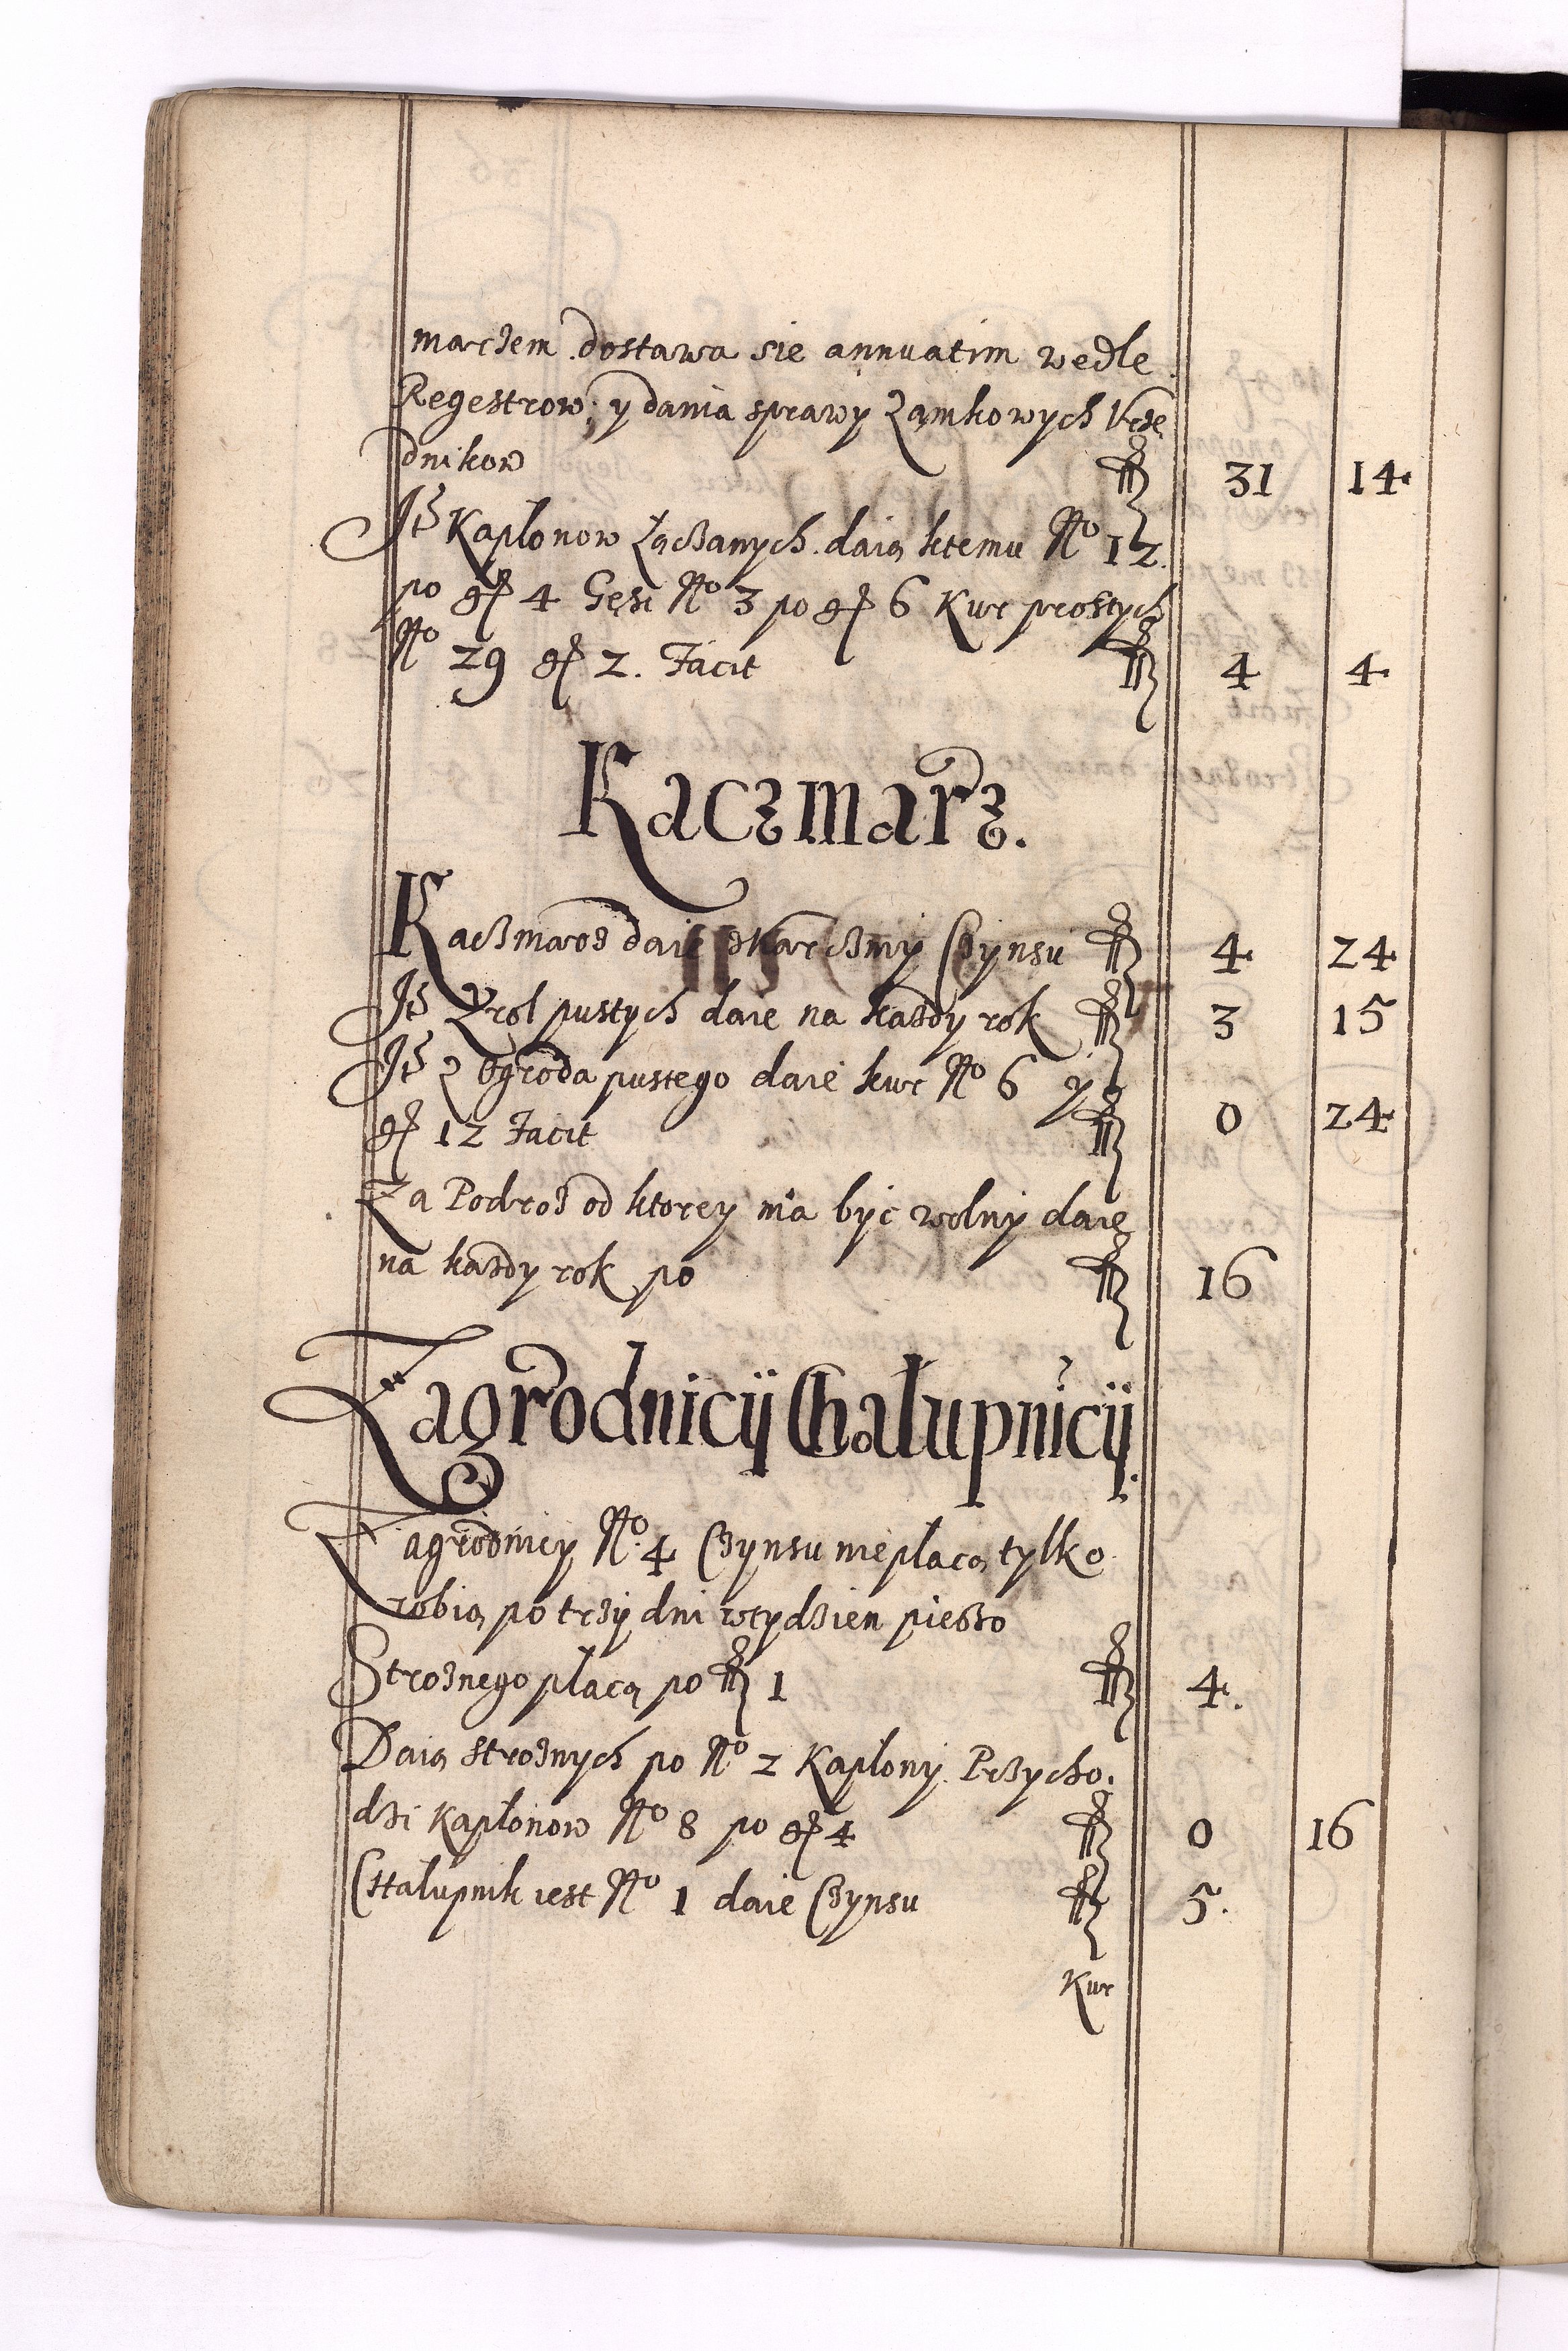 marzem dostawa sie annuatim wedle
Regestrow, y dania sprawy Zamkowych Vrzę
dnikow fl 31 14
Jt Kapłonow Łaczanych daią ktemu No 12.
po gr 4 Gęsi No 3 po gr 6 Kur prostych
No 29 gr 2. Facit fl 4 4
Kaczmarz.
Kaczmarz daie zkarczmy Czynsu fl 4 24
Jt Z rol pustych daie na każdy rok fl 3 15
Jt Z Ogroda pustego daie kur No 6 y
gr 12 Facit fl 0 24
Za Podroż od ktorey ma być wolny daie
na każdy rok po fl 16
Zagrodnicÿ Chałupnicÿ.
Zagrodnicy No. 4 Czynsu niepłacą tylko
robią po trzy dni wtydzien pieszo
Strożnego płacą po fl 1 fl 4.
Daią strożnych po No 2 Kapłony Przycho,
dzi Kapłonow No 8 po gr 4 fl 0 16
Chałupnik iest No 1 daie Czynsu fl 5.
Kur